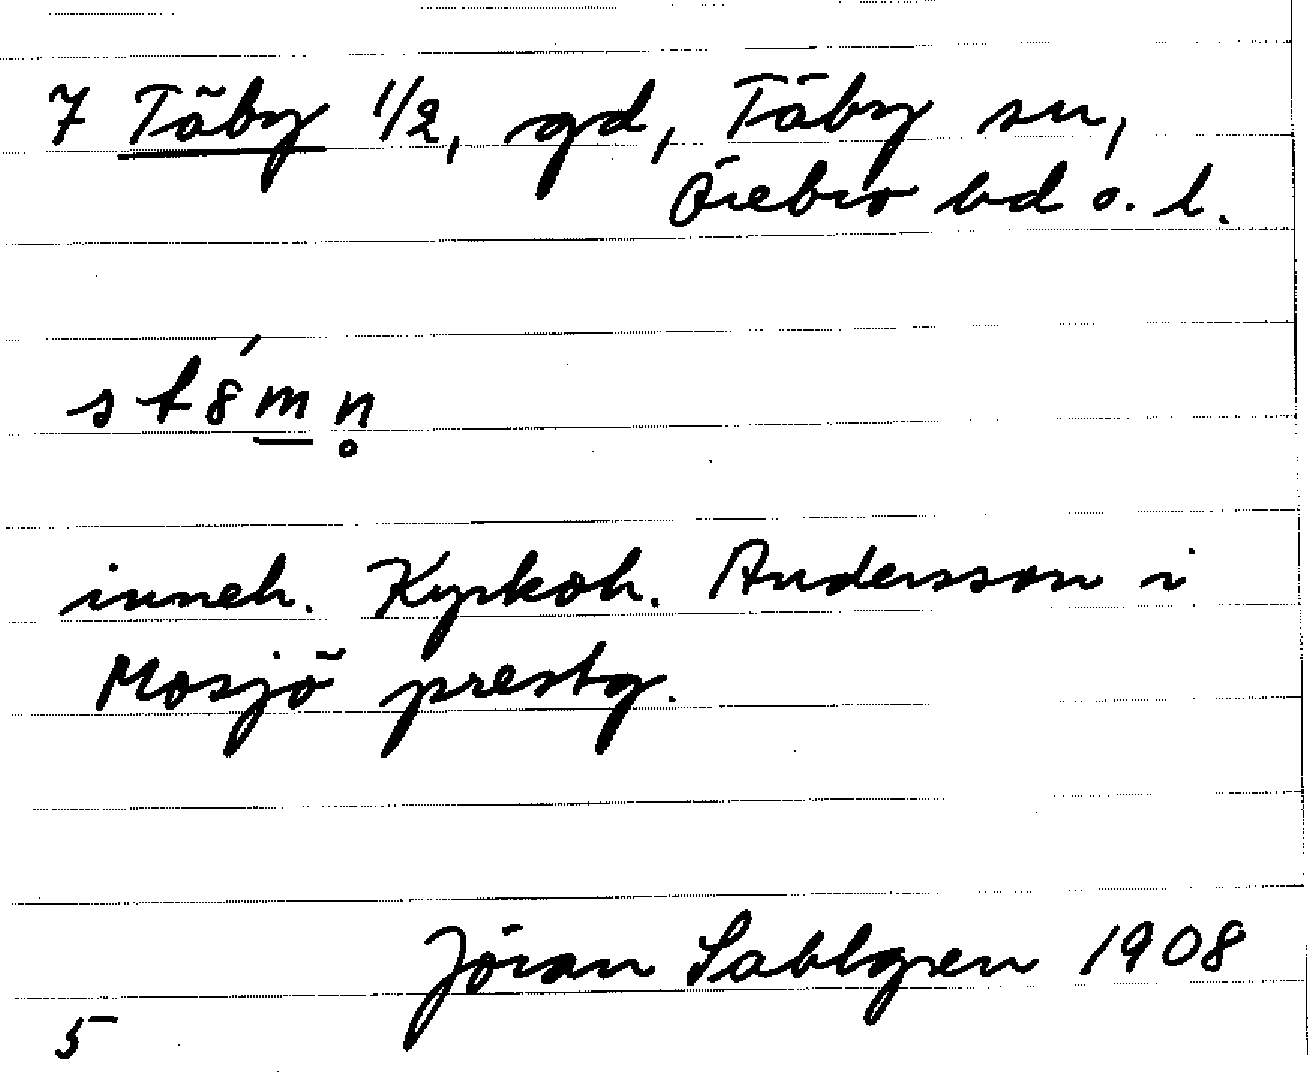 7 Täby 1/2, gd, Täby sn,
Örebro hd o. l.
st8́m̲ n̥
inneh. Kyrkoh. Andersson i
Mosjö prestg.
Jöran Sahlgren 1908
5